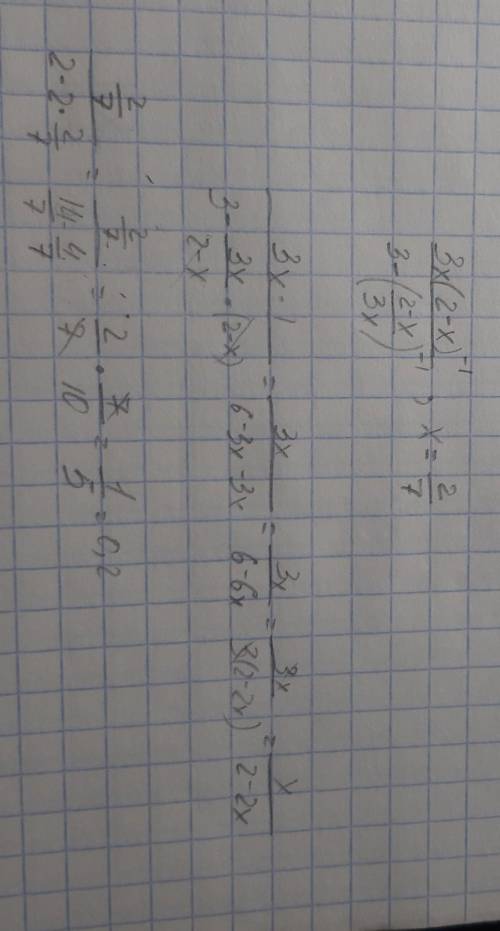 3x(2-x)⁻¹ / 3-((2-x)/(3x))⁻¹ , x = 2/7
3x·1 / (3 - 3x/(2-x))·(2-x) = 3x / 6-3x-3x = 3x / 6-6x = 3x / 3(2-2x) = x / 2-2x
2/7 / 2-2·2/7 = 2/7 / 14/7-4/7 = 2/7 · 7/10 = 1/5 = 0,2